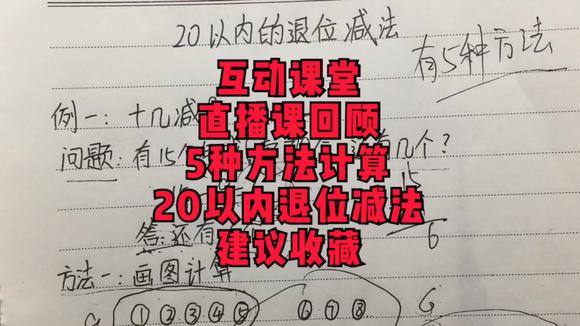 20以内的退位减法
有5种方法
互动课堂
例一:十几减
直播课回顾
问题:有15个 几个?
5种方法计算
15
20以内退位减法
6
答:还有
建议收藏
方法一:画图计算
① ② ③ ④ ⑤ ⑥ ⑦ ⑧